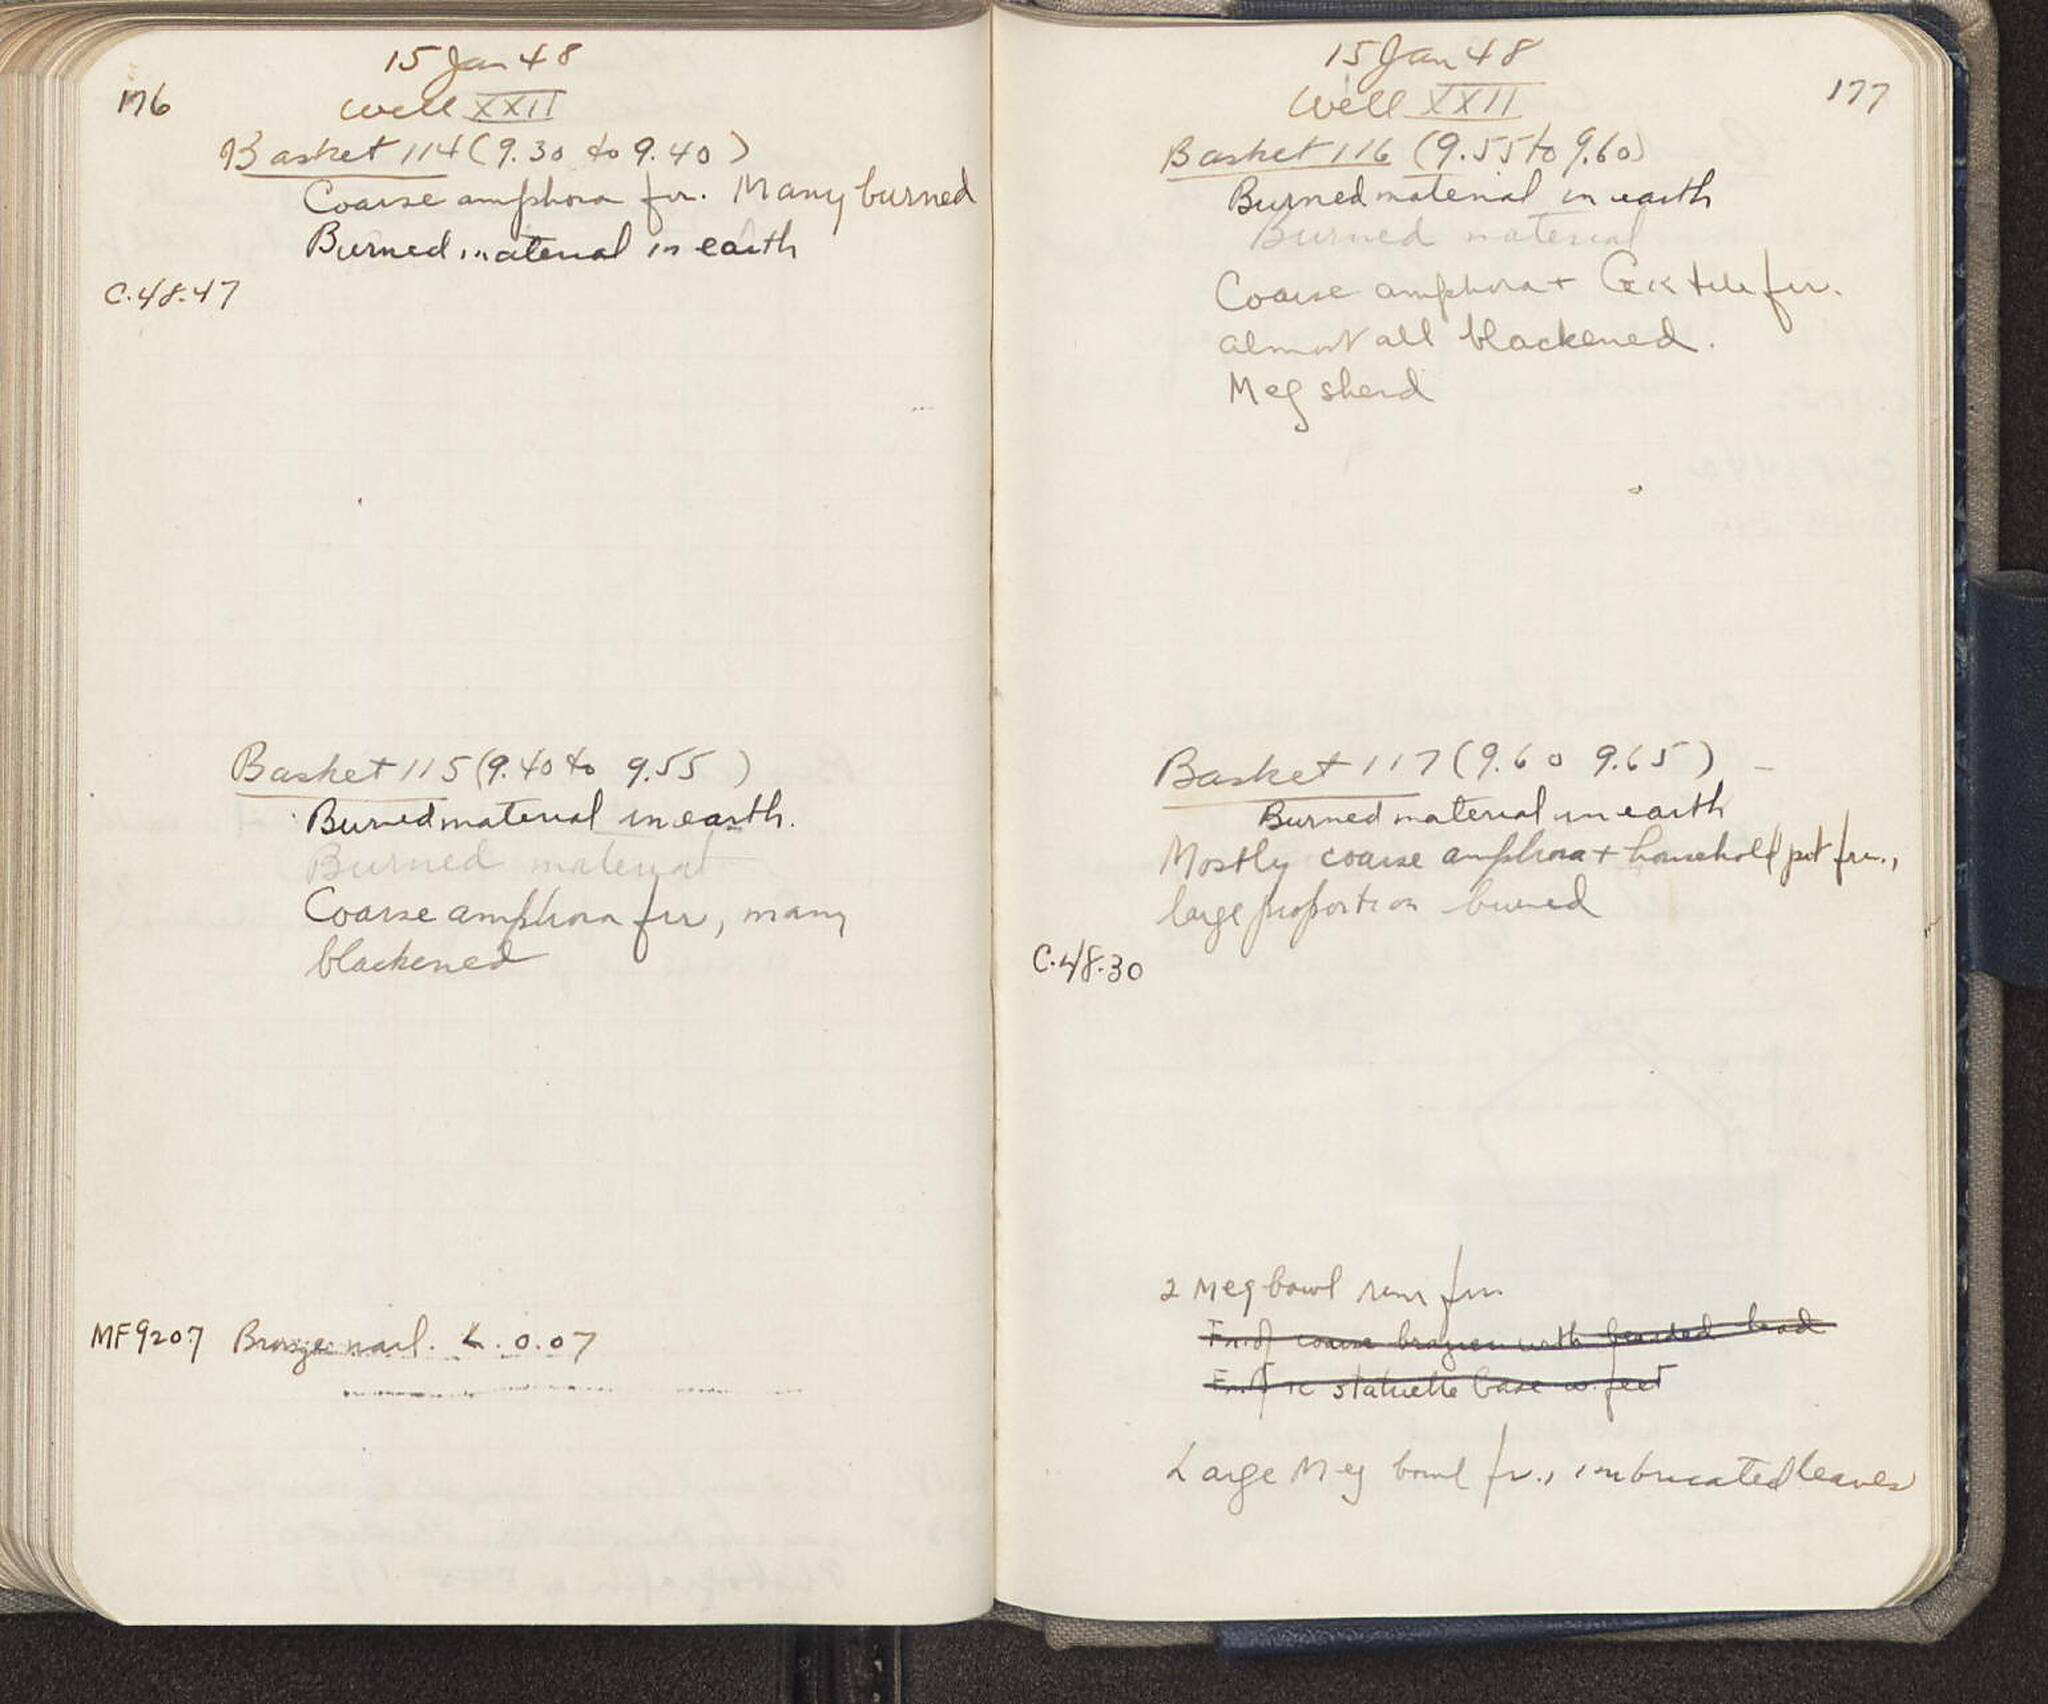 176
15 Jan 48
Well XXII
Basket 114 (9.30 to 9.40)
Coarse amphora frr. Many burned
Burned material in earth
C.48.47
Basket 115 (9.40 to 9.55)
Burned material in earth.
Burned material
Coarse amphora frr, many
blackened
MF9207 Bronze nail. L. 0.07
177
15 Jan 48
Well XXII
Basket 116 (9.55 to 9.60)
Burned material in earth
Burned material
Coarse amphora + Gk tile frr.
almost all blackened.
Meg sherd
Basket 117 (9.60 9.65)
Burned material in earth
Mostly coarse amphora + household pot frr.,
large proportion burned
C.48.30
2 Meg bowl rim frr
Fr. of coarse brazier with bearded head
Fr. of tc statuette base w. feet
Large Meg bowl fr., imbricated leaves